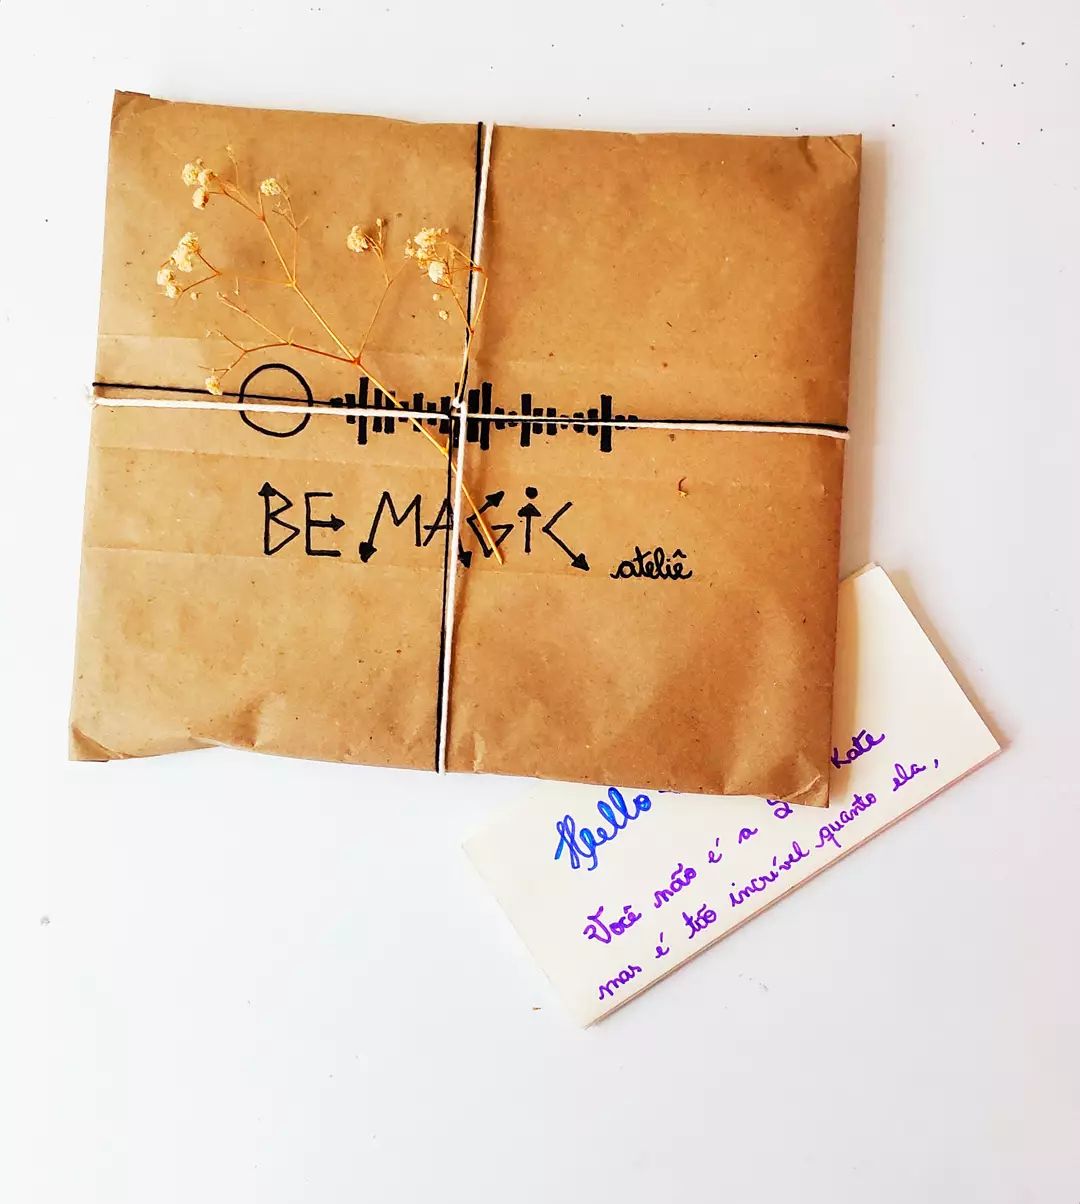 BE MAGiC
ateliê
Hello
Você não é a Kate
mas é tão incrível quanto ela,